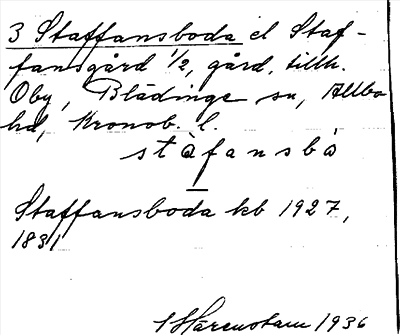 3 Staffansboda el Staf-
fansgård 1/2, gård, tillh.
Oby, Blädinge sn, Allbo
hd, Kronob. l.
stàfansbò
Staffansboda kb 1927,
1831
1936